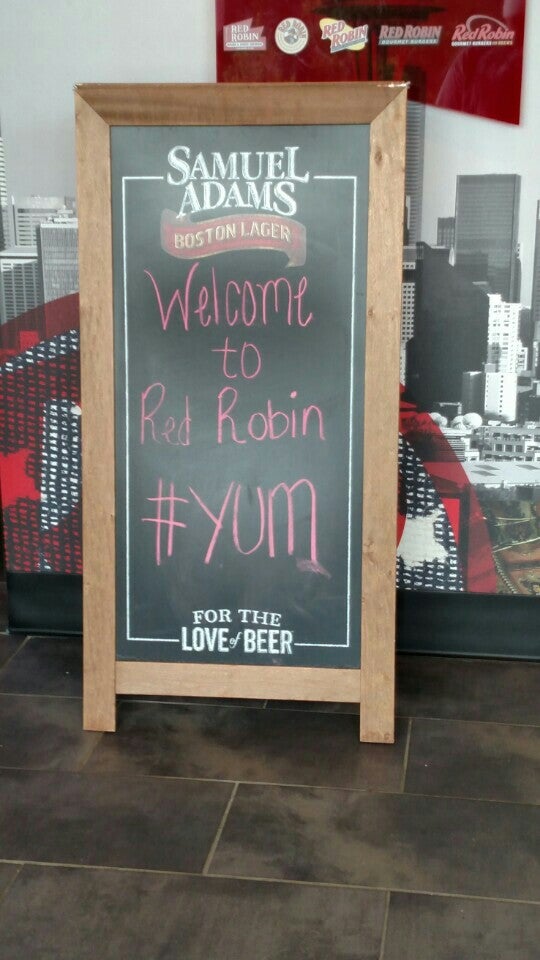 RED ROBIN
RED ROBIN
RED ROBIN
RED ROBIN
GOURMET BURGERS
Red Robin
GOURMET BURGERS AND BREWS
SAMUEL
ADAMS
BOSTON LAGER
Welcome
to
Red Robin
#YUM
FOR THE
LOVE of BEER